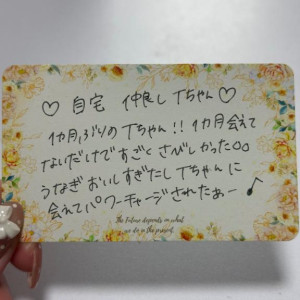 ♡ 自宅 仲良し Tちゃん ♡
1カ月ぶりのTちゃん!! 1カ月会えて
ないだけですごくさびしかった○○
うなぎおいしすぎたしTちゃんに
会えてパワーチャージされたぁー♪
The Future depends on what
we do in the present.